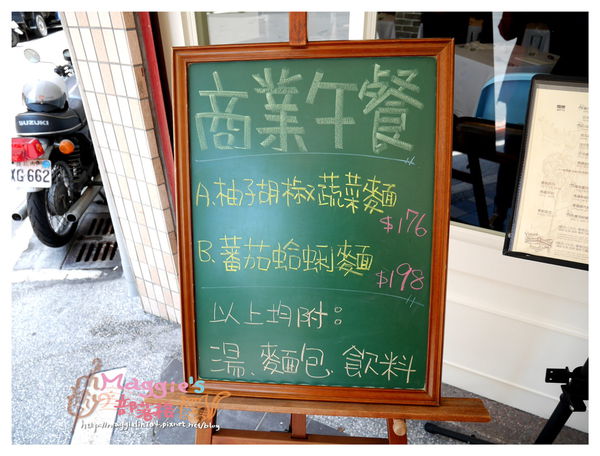 商業午餐
A.柚子胡椒蔬菜麵
$176
B.蕃茄蛤蜊麵
$198
以上均附：
湯、麵包、飲料
SUZUKI
XG 662
Maggie's
部落格